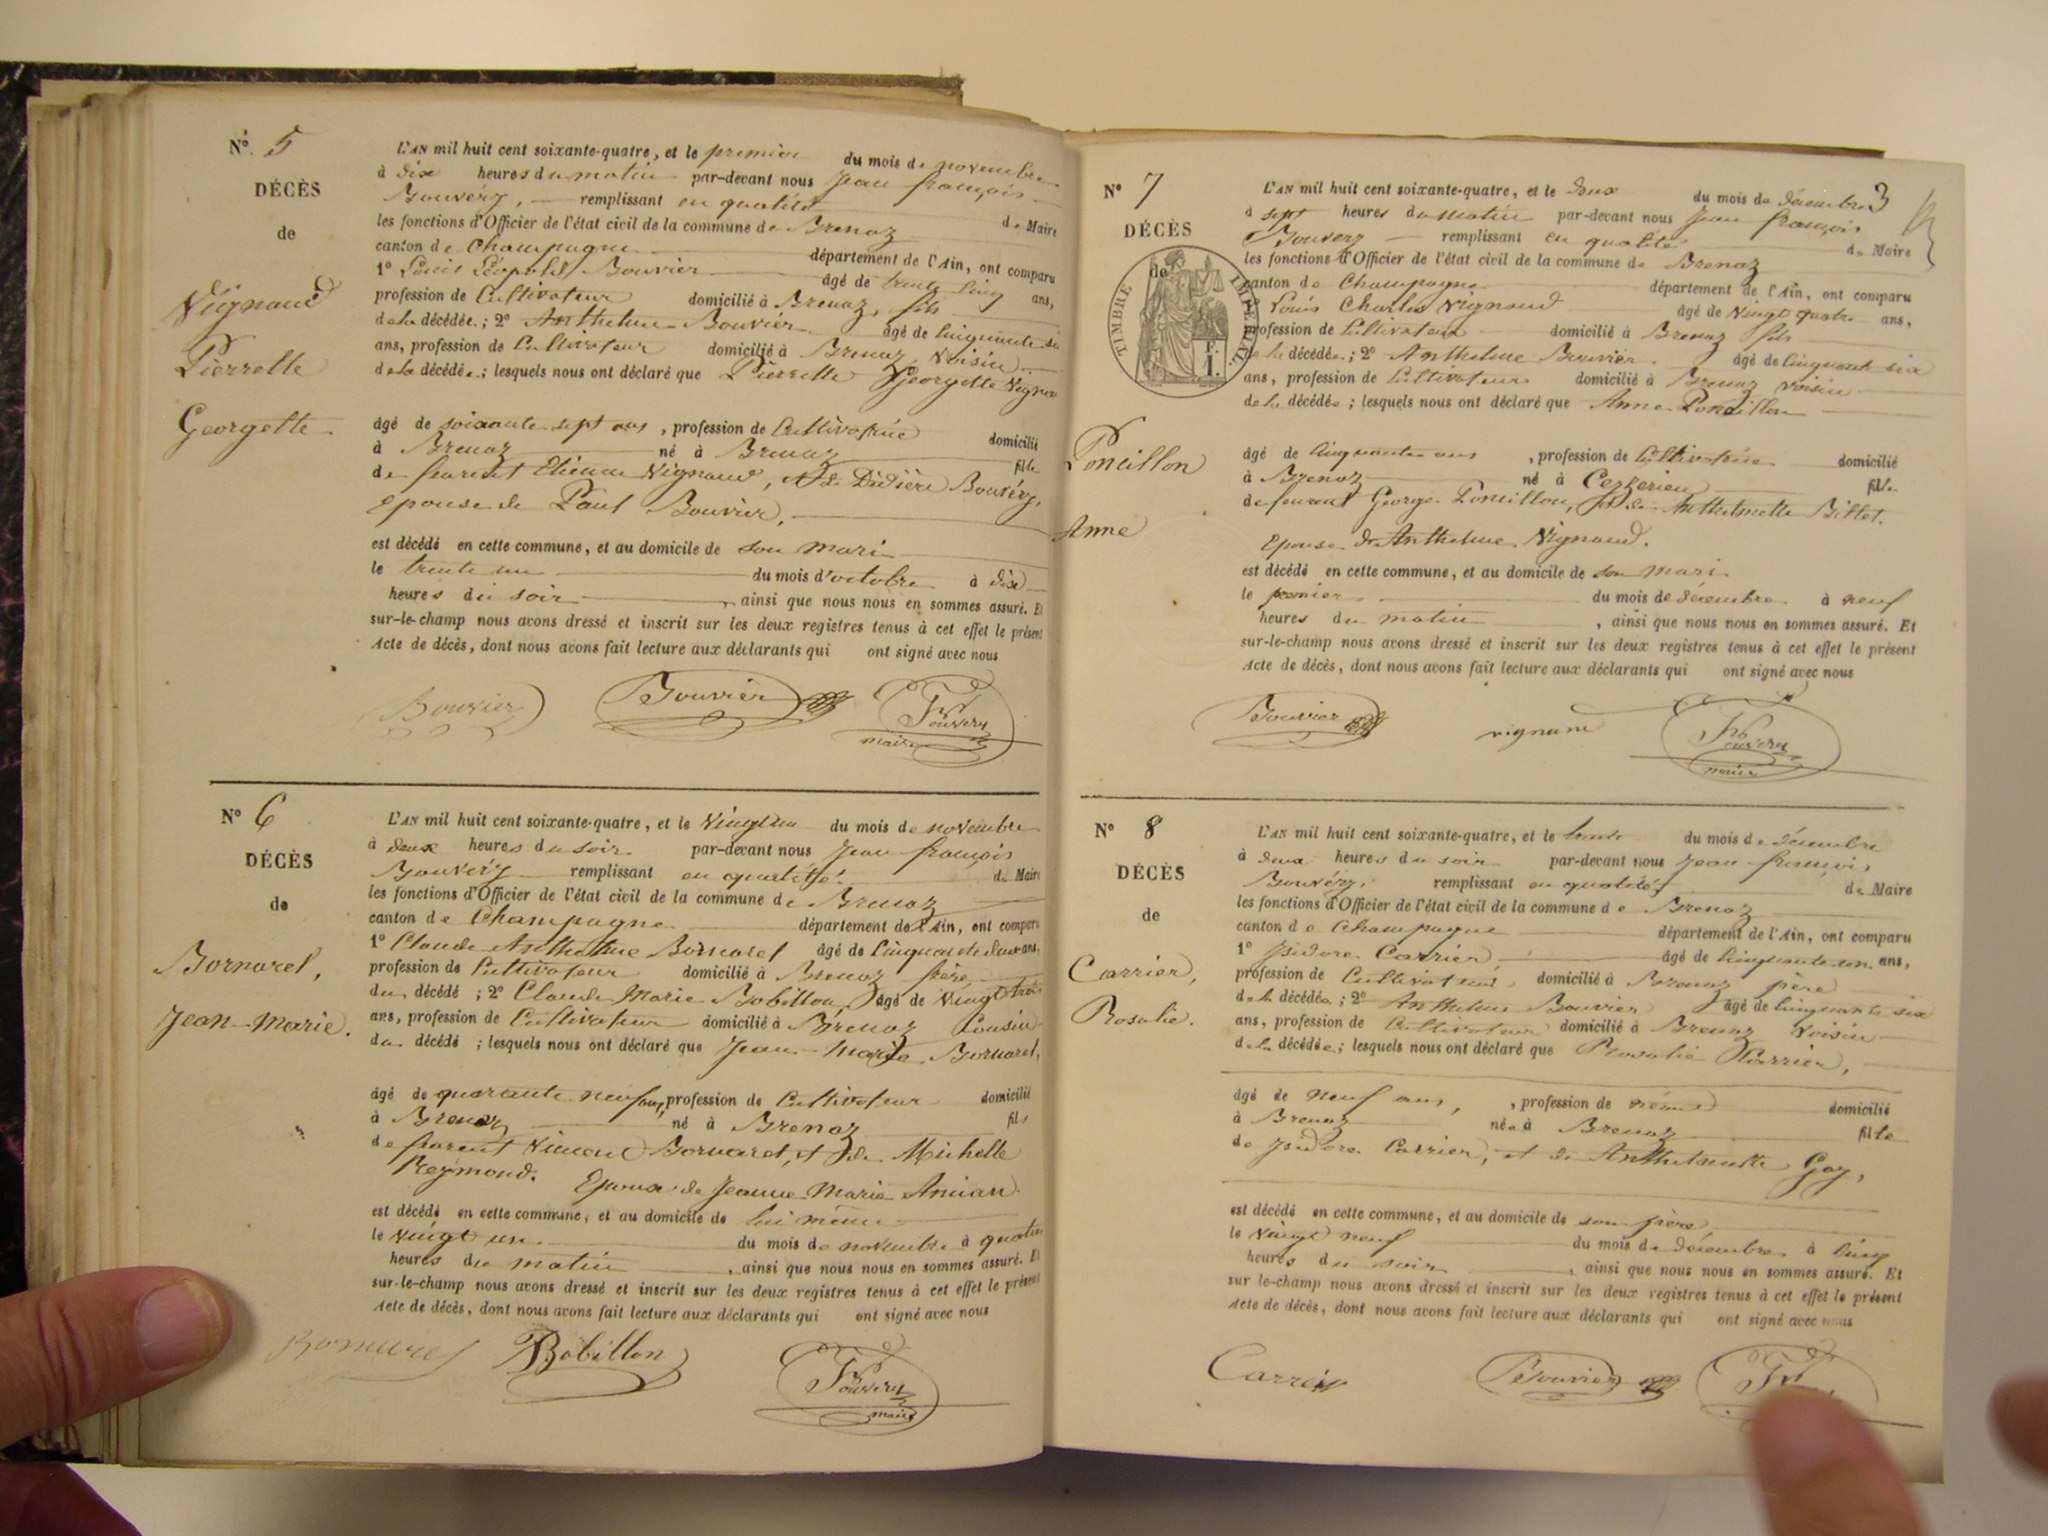 N° 5
DÉCÈS
de
Vignaud
Pierrette
Georgette
L'AN mil huit cent soixante-quatre, et le premier du mois de novembre
à dix heures du matin par-devant nous Jean françois
Bouvéry, remplissant en qualité de Maire
les fonctions d'Officier de l'état civil de la commune de Brenaz
canton de Champagne département de l'Ain, ont comparu
1° Louis Léopold Bouvier âgé de trente cinq ans,
profession de Cultivateur domicilié à Brenaz, fils
de la décédée; 2° Anthelme Bouvier âgé de Cinquante six
ans, profession de Cultivateur domicilié à Brenaz Voisin
de la décédée; lesquels nous ont déclaré que Pierrette Georgette Vignau
âgé de soixante sept ans, profession de Cultivatrice domicilié
à Brenaz né à Brenaz fille
de Etienne Vignaud, et de Didière Bouvéry,
épouse de Paul Bouvier,
est décédé en cette commune, et au domicile de son mari
le trente un du mois d'octobre à dix
heures du soir, ainsi que nous nous en sommes assuré. Et
sur-le-champ nous avons dressé et inscrit sur les deux registres tenus à cet effet le présent
Acte de décès, dont nous avons fait lecture aux déclarants qui ont signé avec nous
Bouvier Bouvier Bouvery
maire
N° 6
DÉCÈS
de
Bornarel,
Jean-Marie.
L'AN mil huit cent soixante-quatre, et le Vingt un du mois de novembre
à deux heures du soir par-devant nous Jean françois
Bouvéry remplissant en qualité de Maire
les fonctions d'Officier de l'état civil de la commune de Brenaz
canton de Champagne département de l'Ain, ont comparu
1° Claude Anthelme Bornarel âgé de Cinquante deux ans,
profession de Cultivateur domicilié à Brenaz frère
du décédé; 2° Claude Marie Bobillon, âgé de Vingt trois
ans, profession de Cultivateur domicilié à Brenaz Cousin
du décédé; lesquels nous ont déclaré que Jean-Marie Bornarel,
âgé de quarante neuf ans, profession de Cultivateur domicilié
à Brenaz né à Brenaz fils
de Bornarel, et de Michelle
Reymond. Epoux de Jeanne Marie Anian
est décédé en cette commune, et au domicile de lui même
le vingt un du mois de novembre à quatre
heures du matin, ainsi que nous nous en sommes assuré. Et
sur-le-champ nous avons dressé et inscrit sur les deux registres tenus à cet effet le présent
Acte de décès, dont nous avons fait lecture aux déclarants qui ont signé avec nous
Bornarel Bobillon Bouvery
maire
3
N° 7
DÉCÈS
de
TIMBRE IMPÉRIAL
F.
1.
Poncillon
Anne
L'AN mil huit cent soixante-quatre, et le deux du mois de décembre
à sept heures du matin par-devant nous Jean françois
Bouvery remplissant en qualité de Maire
les fonctions d'Officier de l'état civil de la commune de Brenaz
canton de Champagne département de l'Ain, ont comparu
1° Louis Charles Vignaud âgé de Vingt quatre ans,
profession de Cultivateur domicilié à Brenaz fils
de la décédée; 2° Anthelme Bouvier âgé de Cinquante six
ans, profession de Cultivateur domicilié à Brenaz voisin
de la décédée; lesquels nous ont déclaré que Anne Poncillon
âgé de Cinquante ans, profession de Cultivatrice domicilié
à Brenaz né à Cerzerieu fille
de George Poncillon, et de Anthelmette Billet.
Epouse de Anthelme Vignaud.
est décédé en cette commune, et au domicile de son mari
le premier du mois de décembre à neuf
heures du matin, ainsi que nous nous en sommes assuré. Et
sur-le-champ nous avons dressé et inscrit sur les deux registres tenus à cet effet le présent
Acte de décès, dont nous avons fait lecture aux déclarants qui ont signé avec nous
Bouvier vignaud Bouvery
maire
N° 8
DÉCÈS
de
Carrier,
Rosalie.
L'AN mil huit cent soixante-quatre, et le trente du mois de décembre
à deux heures du soir par-devant nous Jean françois
Bouvéry, remplissant en qualité de Maire
les fonctions d'Officier de l'état civil de la commune de Brenaz
canton de Champagne département de l'Ain, ont comparu
1° Isidore Carrier, âgé de Cinquante un ans,
profession de Cultivateur domicilié à Brenaz père
de la décédée; 2° Anthelme Bouvier âgé de Cinquante six
ans, profession de Cultivateur domicilié à Brenaz Voisin
de la décédée; lesquels nous ont déclaré que Rosalie Carrier,
âgé de neuf ans, profession de néant domicilié
à Brenaz née à Brenaz fille
de Isidore Carrier, et de Anthelmette Goy,
est décédé en cette commune, et au domicile de son père
le Vingt neuf du mois de décembre à Cinq
heures du soir, ainsi que nous nous en sommes assuré. Et
sur le-champ nous avons dressé et inscrit sur les deux registres tenus à cet effet le présent
Acte de décès, dont nous avons fait lecture aux déclarants qui ont signé avec nous
Carrier Bouvier